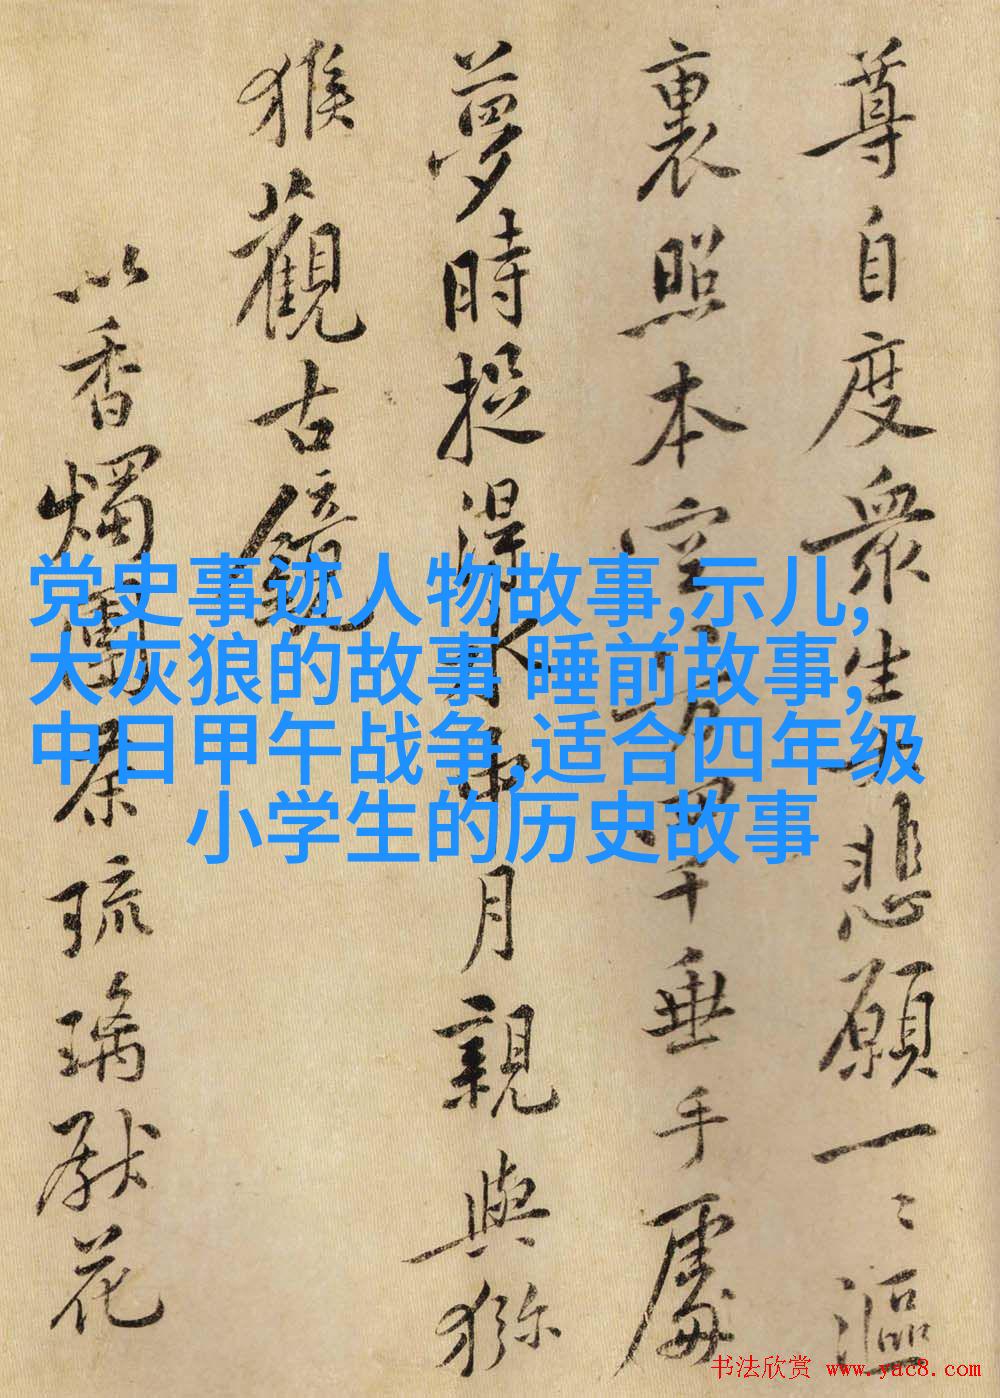 尊自度衆生悲願一〻漚
裏照本空千垂手處
夢時捉得水中月親與獼
猴觀古鏡
以香燭團茶琉璃獻花
党史事迹人物故事,示儿,
大灰狼的故事 睡前故事,
中日甲午战争,适合四年级
小学生的历史故事
书法欣赏 www.yac8.com